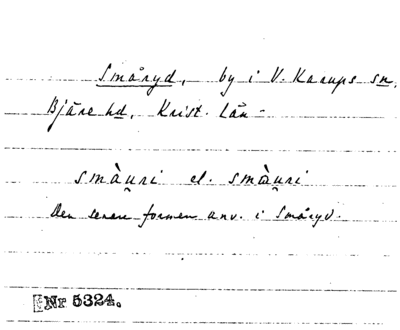 Småryd, by i V. Karups sn,
Bjäre hd, Krist. län -
smàu̯ri el. smɑ̀u̯ri
Den senare formen anv. i Småryd.
Nr 5324.